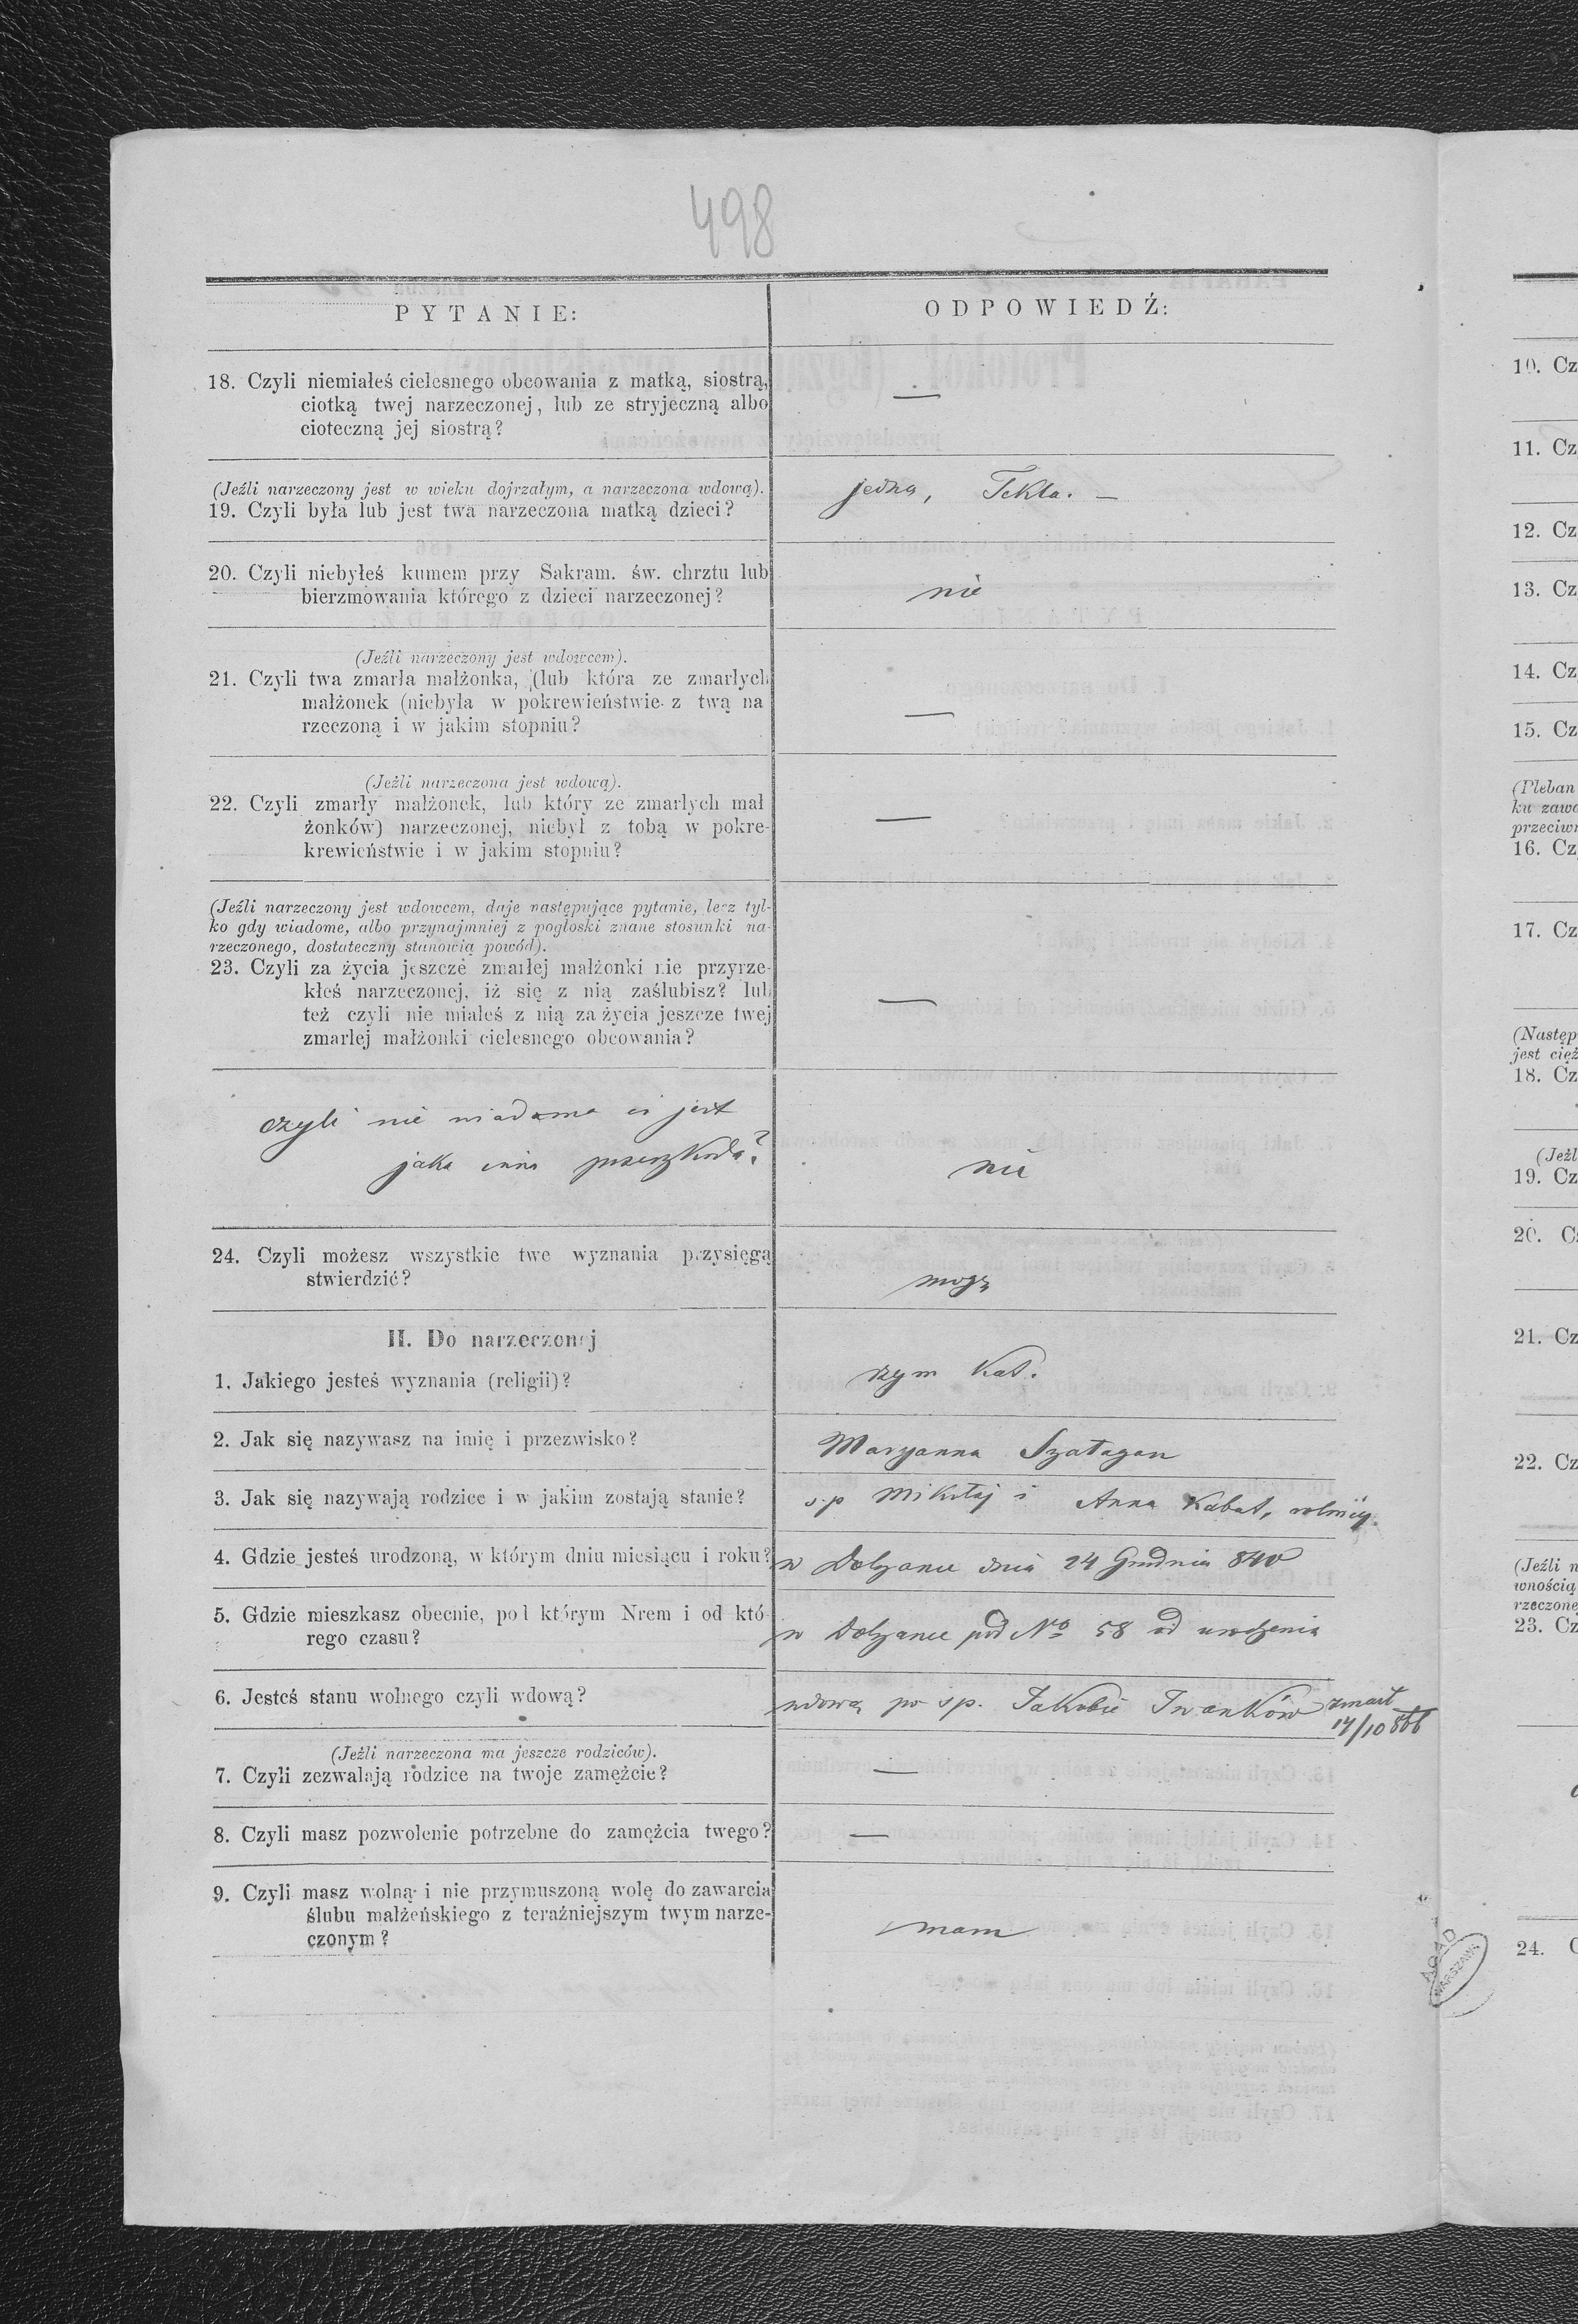 498
PYTANIE:
ODPOWIEDŹ:
18. Czyli niemiałeś cielesnego obcowania z matką, siostrą,
ciotką twej narzeczonej, lub ze stryjeczną albo
cioteczną jej siostrą?
—
(Jeźli narzeczony jest w wieku dojrzałym, a narzeczona wdową).
19. Czyli była lub jest twa narzeczona matką dzieci?
jedną, Tekla. —
20. Czyli niebyłeś kumem przy Sakram. św. chrztu lub
bierzmowania którego z dzieci narzeczonej?
nie
(Jeźli narzeczony jest wdowcem).
21. Czyli twa zmarła małżonka, (lub która ze zmarłych
małżonek (niebyła w pokrewieństwie z twą na
rzeczoną i w jakim stopniu?
—
(Jeźli narzeczona jest wdową).
22. Czyli zmarły małżonek, lub który ze zmarłych mał
żonków) narzeczonej, niebył z tobą w pokre-
krewieństwie i w jakim stopniu?
—
(Jeźli narzeczony jest wdowcem, daje następujące pytanie, lecz tyl-
ko gdy wiadome, albo przynajmniej z pogłoski znane stosunki na-
rzeczonego, dostateczny stanowią powód).
23. Czyli za życia jeszcze zmarłej małżonki nie przyrze-
kłeś narzeczonej, iż się z nią zaślubisz? lub
też czyli nie miałeś z nią za życia jeszcze twej
zmarłej małżonki cielesnego obcowania?
—
czyli nie wiadoma ci jest
jaka inna przeszkoda?
nie
24. Czyli możesz wszystkie twe wyznania przysięgą
stwierdzić?
mogę
II. Do narzeczonej
1. Jakiego jesteś wyznania (religii)?
rzym Kat.
2. Jak się nazywasz na imię i przezwisko?
Maryanna Szałagan
3. Jak się nazywają rodzice i w jakim zostają stanie?
s.p Mikołaj i Anna Kabat, rolnicy.
4. Gdzie jesteś urodzoną, w którym dniu miesiącu i roku?
w Dołzance dnia 24 Grudnia 840
5. Gdzie mieszkasz obecnie, pod którym Nrem i od któ-
rego czasu?
w Dołzance pod No 58 od urodzenia
6. Jesteś stanu wolnego czyli wdową?
wdową po s.p. Jakobie Iwanków zmarł
17/10 866
(Jeźli narzeczona ma jeszcze rodziców).
7. Czyli zezwalają rodzice na twoje zamężcie?
—
8. Czyli masz pozwolenie potrzebne do zamężcia twego?
—
9. Czyli masz wolną i nie przymuszoną wolę do zawarcia
ślubu małżeńskiego z teraźniejszym twym narze-
czonym?
mam
AGAD
WARSZAWA
10. Cz
11. Cz
12. Cz
13. Cz
14. Cz
15. Cz
(Pleban
ku zawa
przeciwn
16. Cz
17. Cz
(Następ
jest cięż
18. Cz
(Jeźl
19. Cz
20. C
21. Cz
22. Cz
(Jeźli n
wnością
rzeczone
23. Cz
24. C